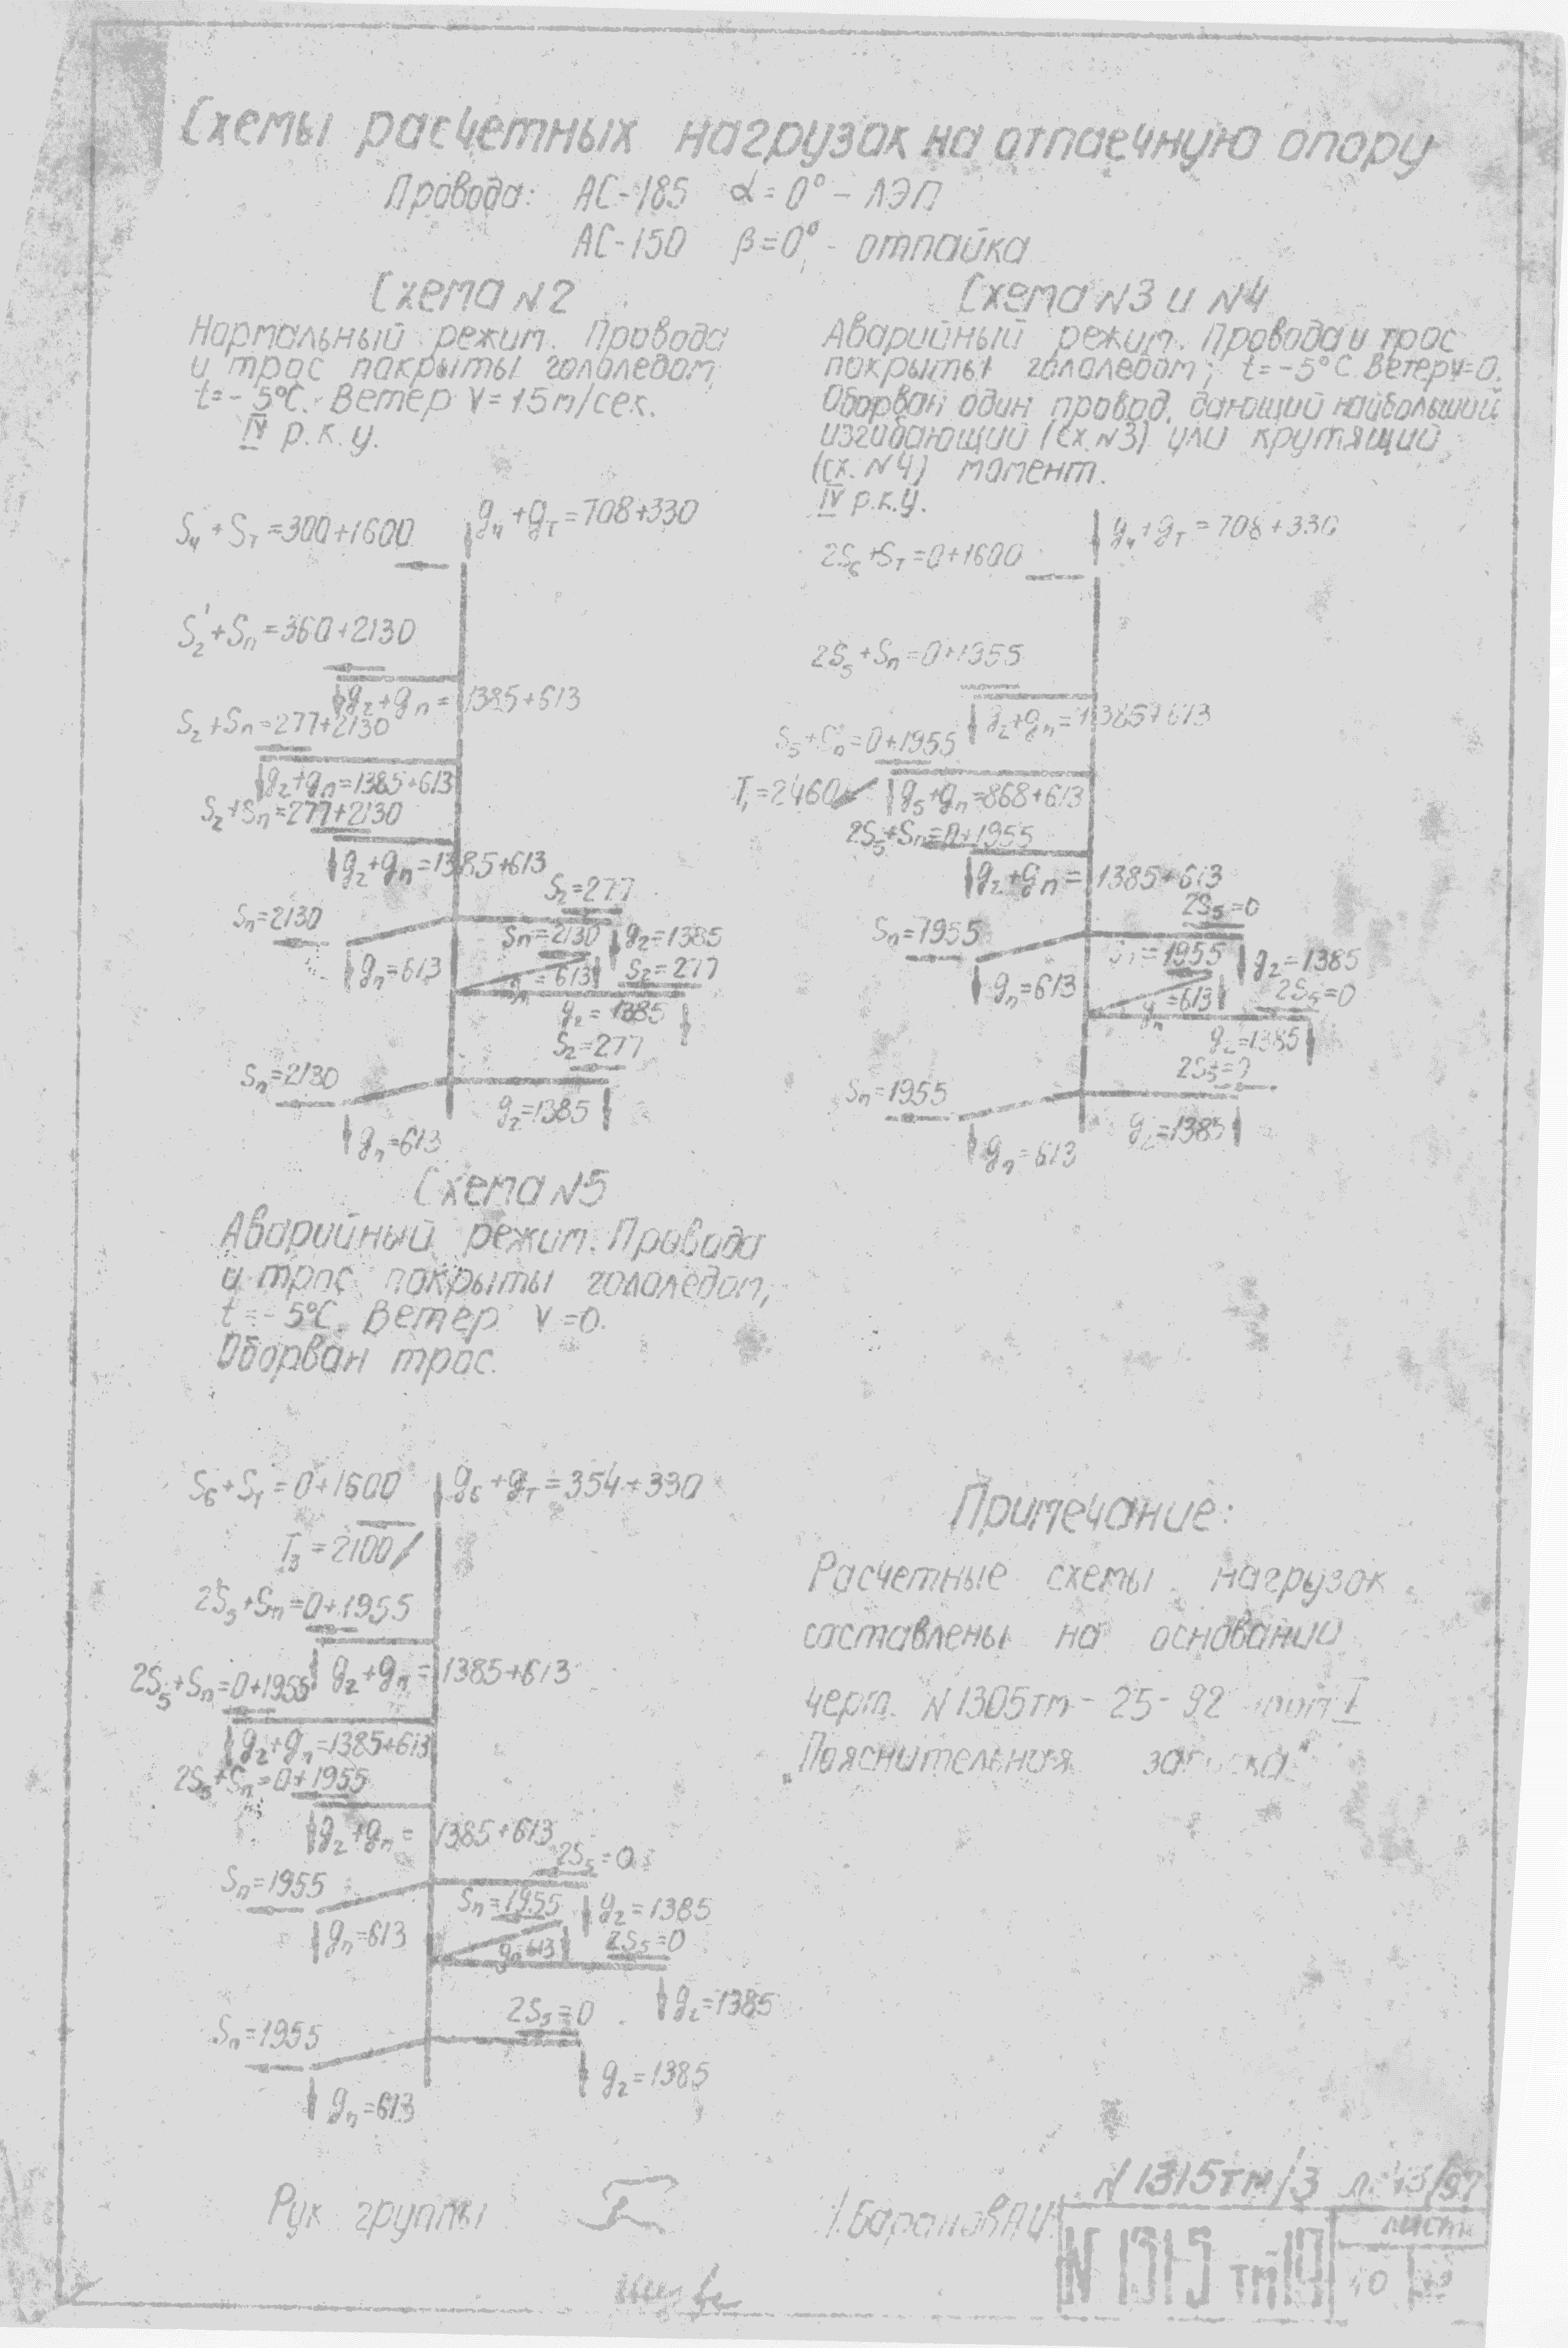 Схемы расчетных нагрузок на отпаечную опору
Провода: АС-185 α=0° - ЛЭП
АС-150 β=0° - отпайка
Схема N2
Нормальный режим. Провода
и трос покрыты гололедом,
t=-5°С. Ветер V=15м/сек.
IV р.к.у.
S₄+Sт=300+1600
g₄+gт=708+330
S₂'+Sп=360+2130
g₂+gп=1385+613
S₂+Sп=277+2130
g₂+gп=1385+613
S₂+Sп=277+2130
g₂+gп=1385+613
S₂=277
Sп=2130
Sп=2130
g₂=1385
gп=613
gп=613
S₂=277
g₂=1385
S₂=277
Sп=2130
g₂=1385
gп=613
Схема N3 и N4
Аварийный режим. Провода и трос
покрыты гололедом; t=-5°С. Ветер V=0.
Оборван один провод, дающий наибольший
изгибающий (Сх.N3) или крутящий
(сх.N4) момент.
IV р.к.у.
g₄+gт=708+330
2S₆+Sт=0+1600
2S₅+Sп=0+1355
g₂+gп=1385+613
S₅+Sп=0+1955
T₁=2460
g₅+gп=868+613
2S₅+Sп=0+1955
g₂+gп=1385+613
2S₅=0
Sп=1955
=1955
g₂=1385
gп=613
gп=613
2S₅=0
g₂=1385
2S₅=0
Sп=1955
g₂=1385
gп=613
Схема N5
Аварийный режим. Провода
и трос покрыты гололедом,
t=-5°С. Ветер V=0.
Оборван трос.
S₆+Sт=0+1600
g₆+gт=354+330
T₃=2100
2S₅+Sп=0+1955
g₂+gп=1385+613
2S₅+Sп=0+1955
g₂+gп=1385+613
2S₅+Sп=0+1955
g₂+gп=1385+613
2S₅=0
Sп=1955
Sп=1955
g₂=1385
gп=613
gп=613
2S₅=0
g₂=1385
2S₅=0
Sп=1955
g₂=1385
gп=613
Примечание:
Расчетные схемы нагрузок
составлены на основании
черт. N1305тм-25-92 I
„Пояснительная записка"
Рук группы
Баранов
N1315тм/3
лист
N 1315 тм